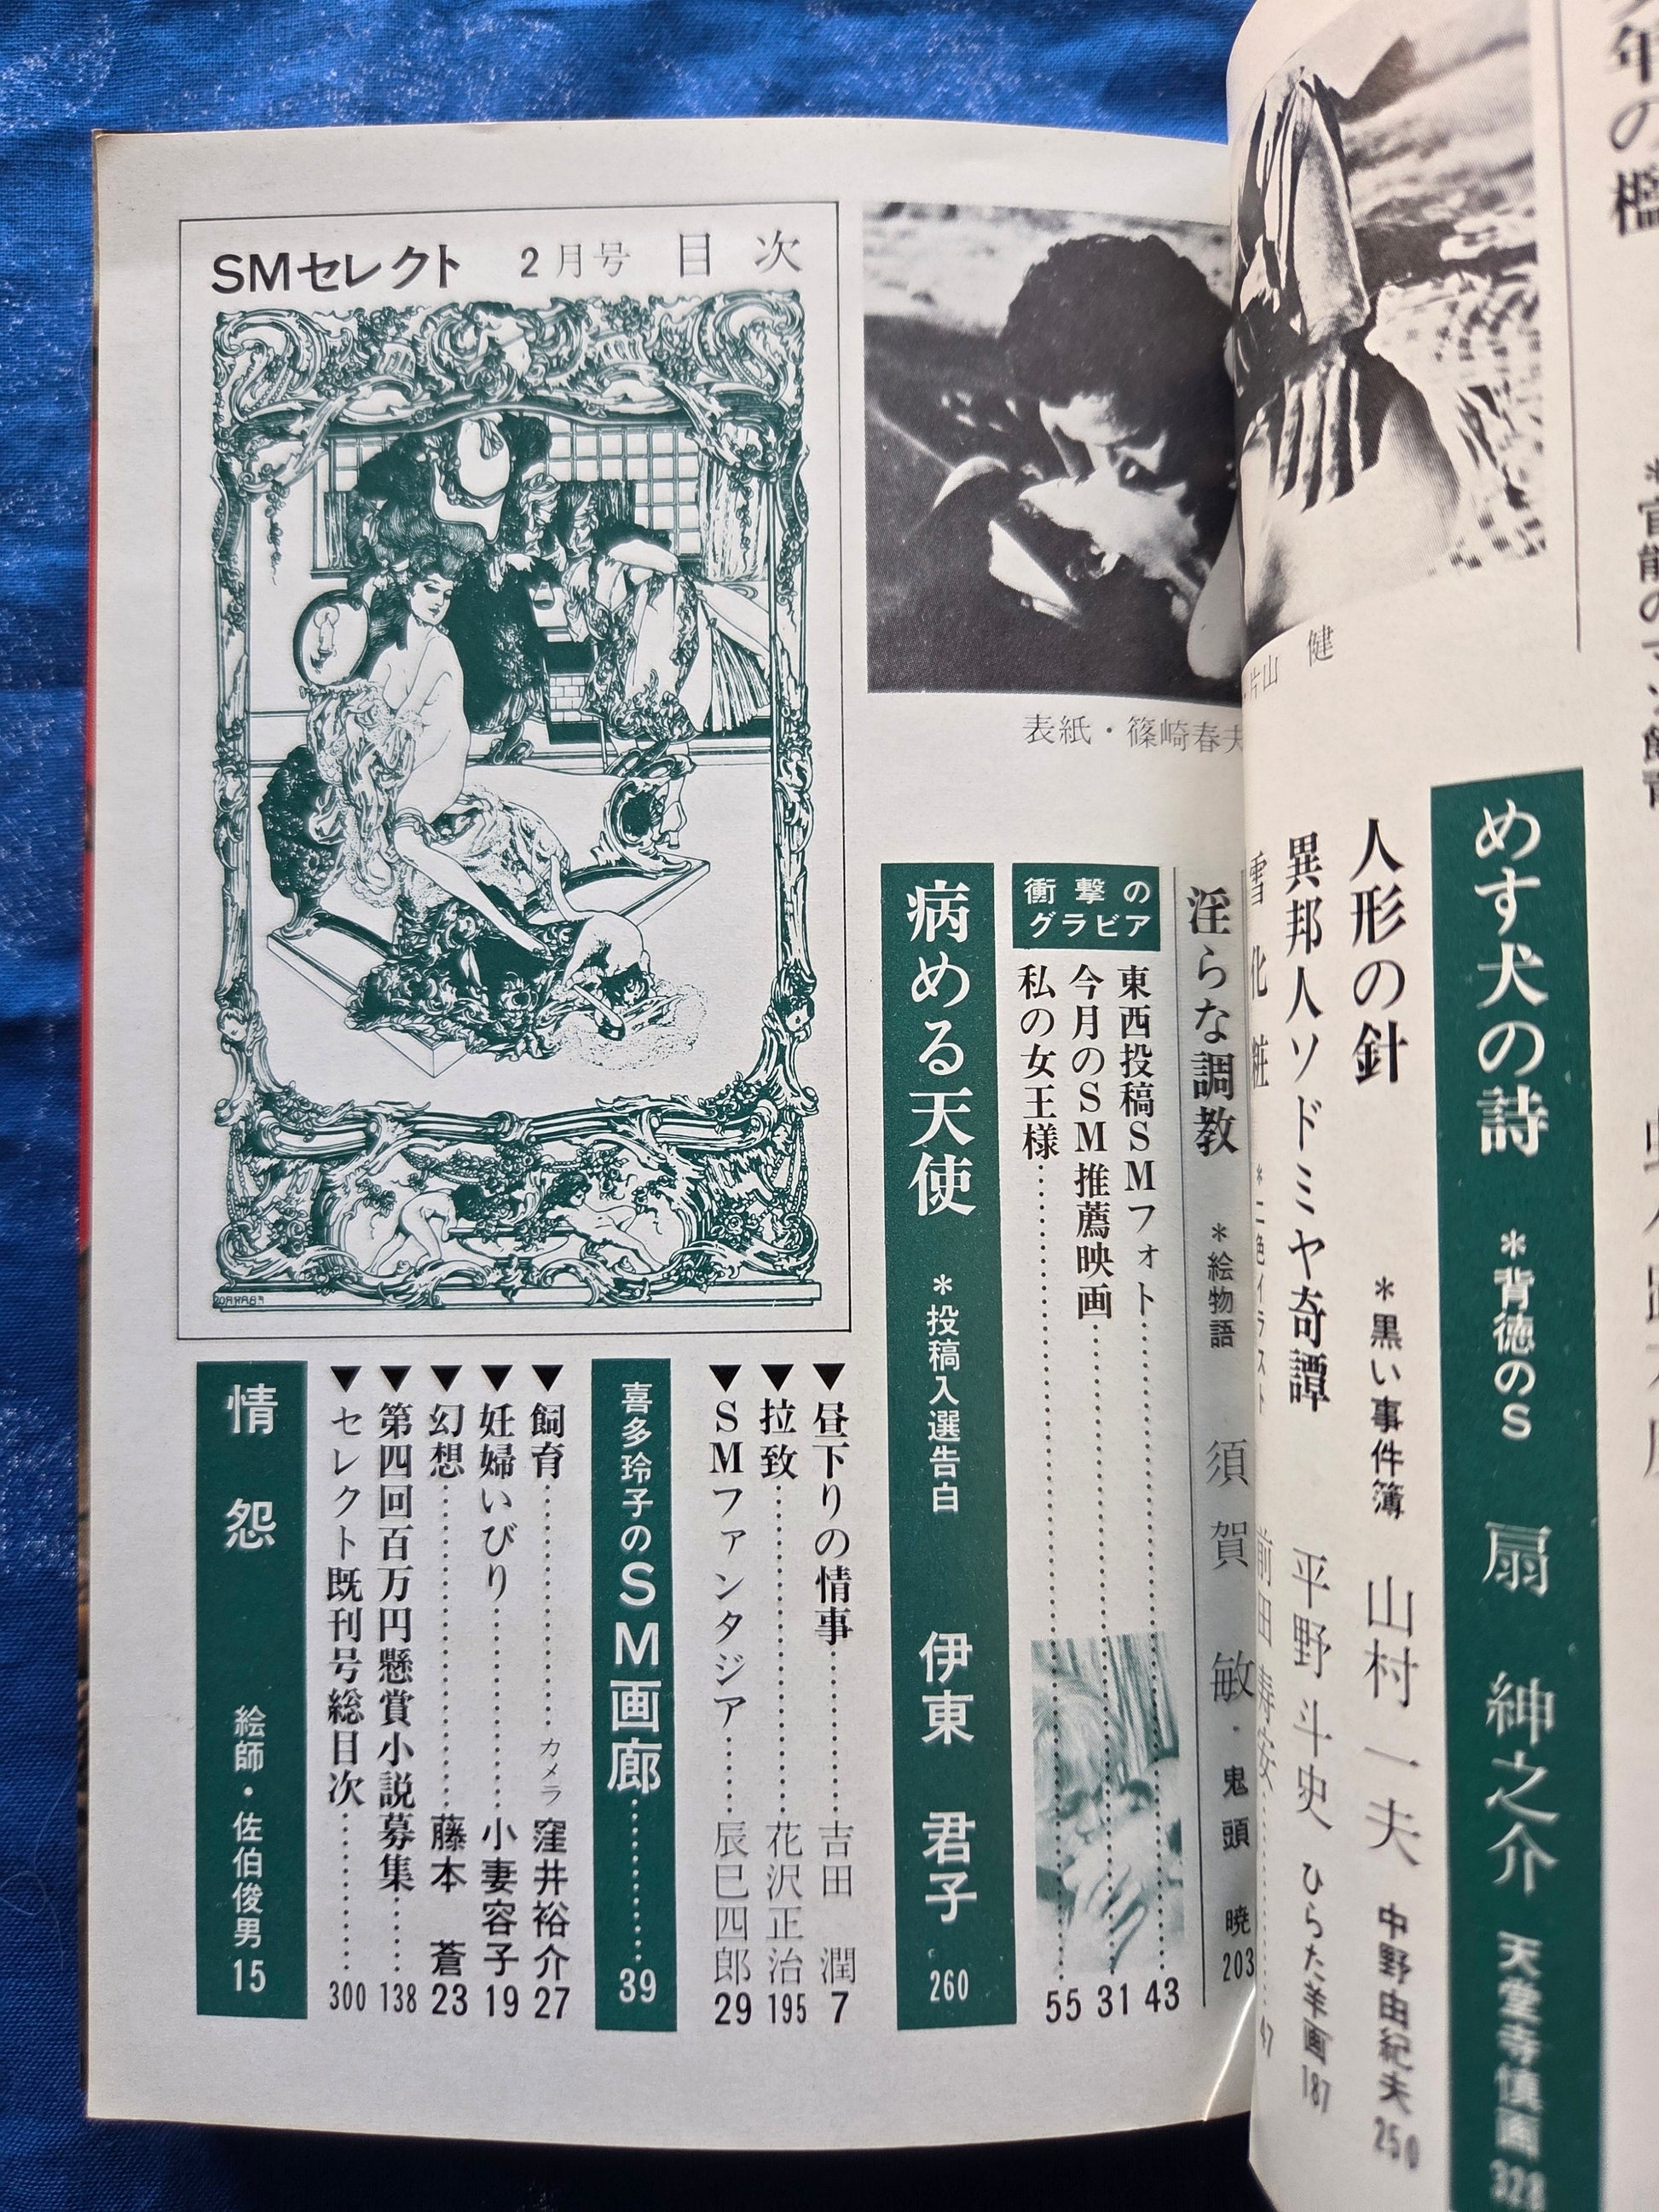 SMセレクト 2月号 目次
表紙・篠崎春夫
片山 健
めす犬の詩 *背徳のS 扇 紳之介 天堂寺慎画 328
人形の針 *黒い事件簿 山村一夫 中野由紀夫 250
異邦人ソドミヤ奇譚 平野斗史 ひらた羊画 187
雪化粧 *二色イラスト 前田寿安 47
淫らな調教 *絵物語 須賀 敏・鬼頭 暁 203
衝撃の
グラビア
東西投稿SMフォト 43
今月のSM推薦映画 31
私の女王様 55
病める天使 *投稿入選告白 伊東 君子 260
▼昼下りの情事 吉田 潤 7
▼拉致 花沢正治 195
▼SMファンタジア 辰巳四郎 29
喜多玲子のSM画廊 39
▼飼育 カメラ 窪井裕介 27
▼妊婦いびり 小妻容子 19
▼幻想 藤本 蒼 23
▼第四回百万円懸賞小説募集 138
▼セレクト既刊号総目次 300
情怨 絵師・佐伯俊男 15
年の檻